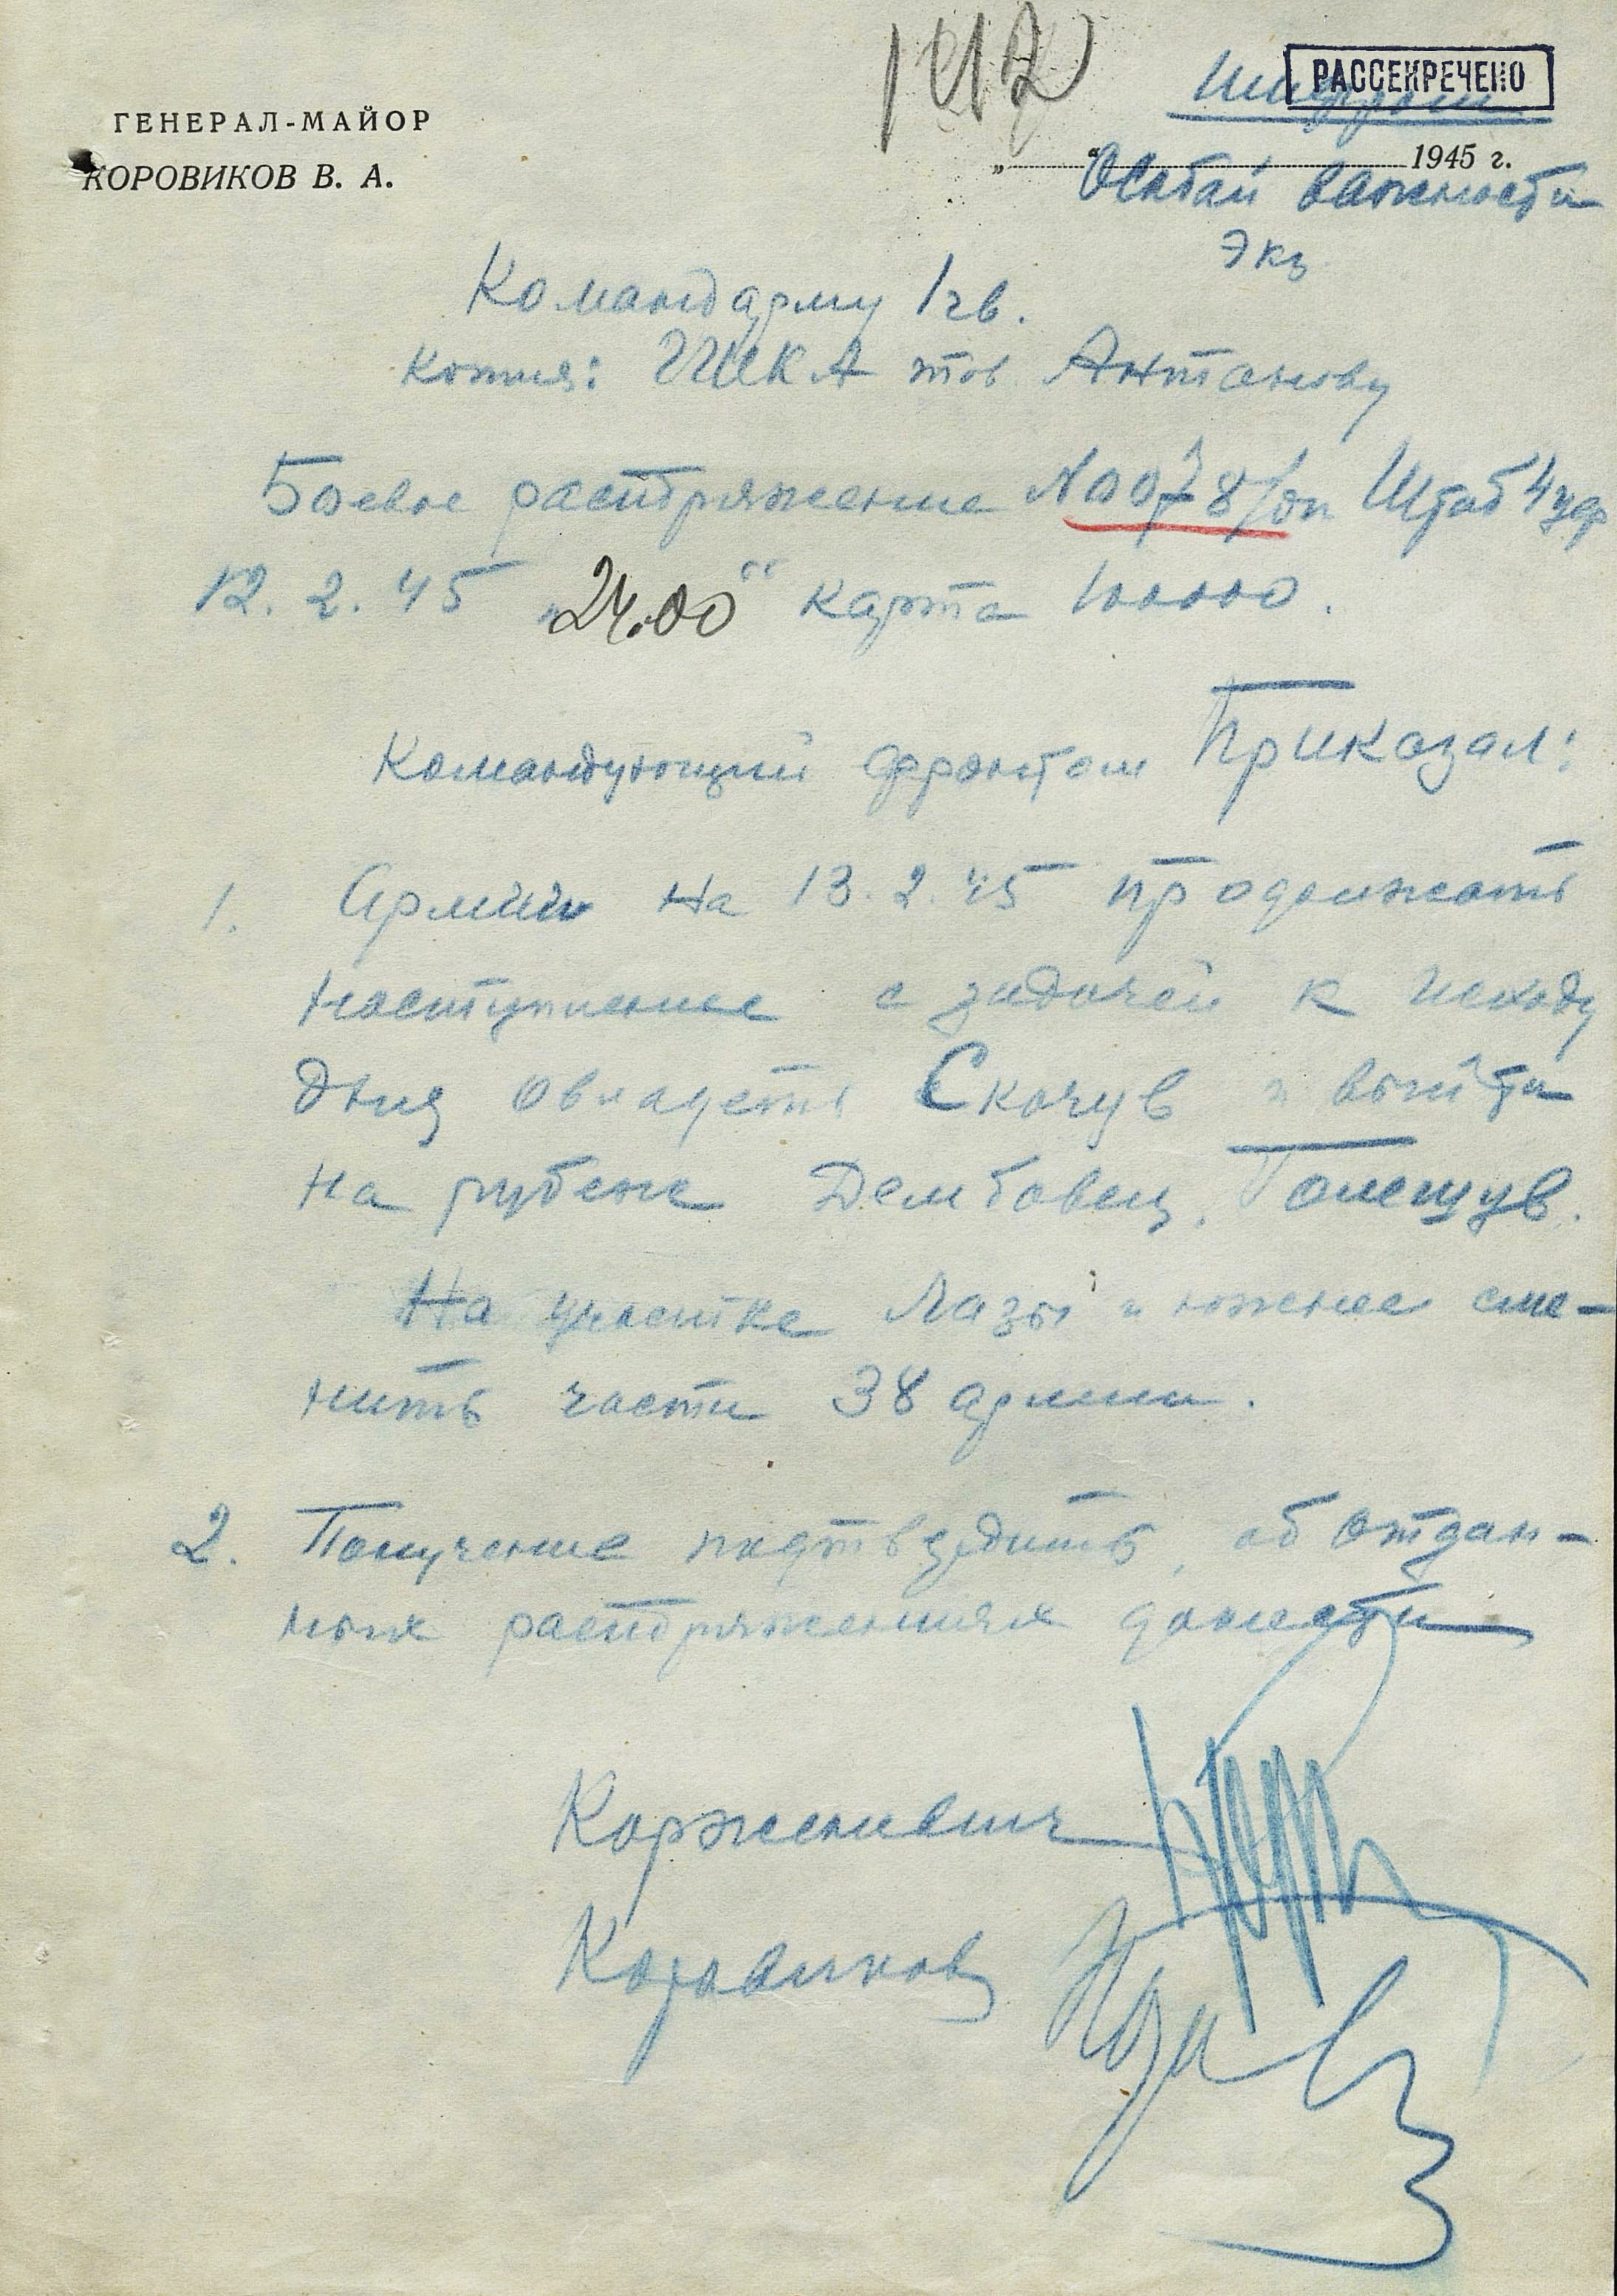 ГЕНЕРАЛ-МАЙОР
КОРОВИКОВ В. А.
РАССЕКРЕЧЕНО
Шифром
„ “ 1945 г.
Особой важности
Экз
Командарму 1 гв.
Копия: НГШКА тов. Антонову
Боевое распоряжение №0078/оп Штаб 4 укр
12.2.45 „24.00“ карта 100000.
Командующий фронтом Приказал:
1. Армии на 13.2.45 продолжать
наступление с задачей к исходу
дня овладеть Скочув и выйти
на рубеж Дембовец, Голешув.
На участке Лазы и южнее сме-
нить части 38 армии.
2. Получение подтвердить, об отдан-
ных распоряжениях донести
Корженевич
Коровиков